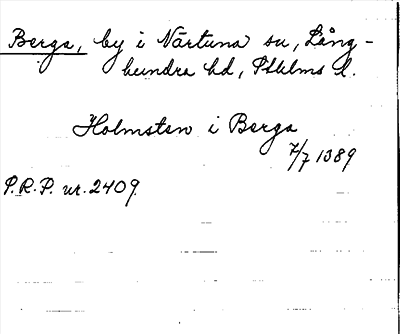 Berga, by i Närtuna sn, Lång-
hundra hd, Sthlms l.
Holmsten i Berga
7/7 1389
P.R.P. nr. 2409